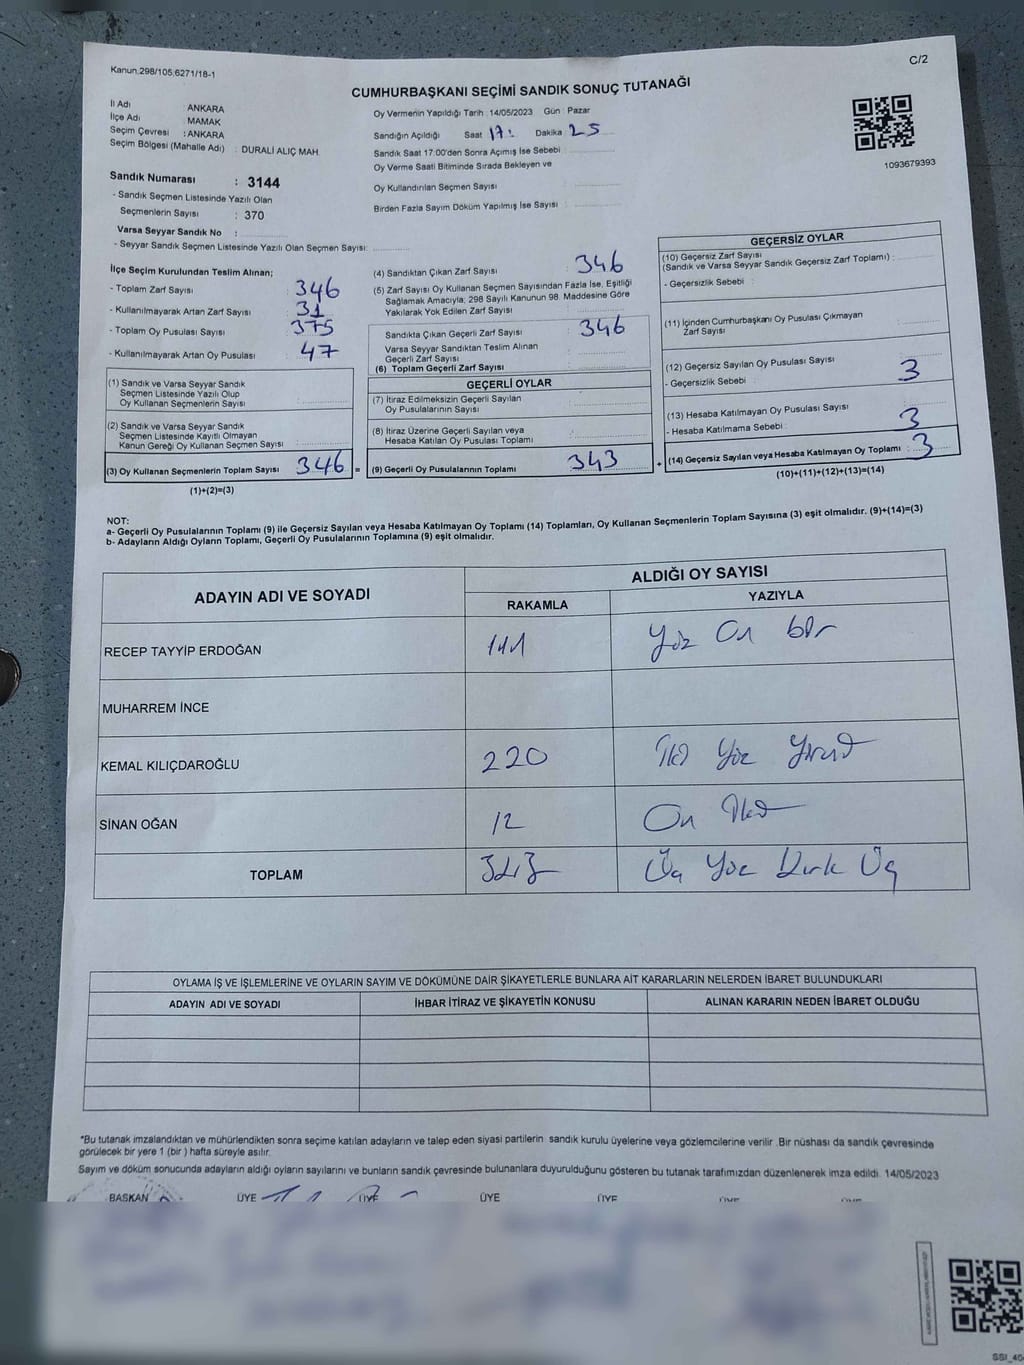 Kanun.298/105;6271/18-1
C/2
CUMHURBAŞKANI SEÇİMİ SANDIK SONUÇ TUTANAĞI
İl Adı : ANKARA
İlçe Adı : MAMAK
Seçim Çevresi : ANKARA
Seçim Bölgesi (Mahalle Adı) : DURALİ ALIÇ MAH.
Oy Vermenin Yapıldığı Tarih :14/05/2023 Gün : Pazar
Sandığın Açıldığı Saat 17: Dakika 25
Sandık Saat 17:00'den Sonra Açımış İse Sebebi :
Oy Verme Saati Bitiminde Sırada Bekleyen ve
Oy Kullandırılan Seçmen Sayısı :
Birden Fazla Sayım Döküm Yapılmış İse Sayısı :
1093679393
Sandık Numarası : 3144
- Sandık Seçmen Listesinde Yazılı Olan
Seçmenlerin Sayısı : 370
Varsa Seyyar Sandık No :
- Seyyar Sandık Seçmen Listesinde Yazılı Olan Seçmen Sayısı:
İlçe Seçim Kurulundan Teslim Alınan;
- Toplam Zarf Sayısı : 346
- Kullanılmayarak Artan Zarf Sayısı : 31
- Toplam Oy Pusulası Sayısı : 375
- Kullanılmayarak Artan Oy Pusulası : 47
(1) Sandık ve Varsa Seyyar Sandık
Seçmen Listesinde Yazılı Olup
Oy Kullanan Seçmenlerin Sayısı :
(2) Sandık ve Varsa Seyyar Sandık
Seçmen Listesinde Kayıtlı Olmayan
Kanun Gereği Oy Kullanan Seçmen Sayısı :
(3) Oy Kullanan Seçmenlerin Toplam Sayısı : 346 =
(1)+(2)=(3)
(4) Sandıktan Çıkan Zarf Sayısı : 346
(5) Zarf Sayısı Oy Kullanan Seçmen Sayısından Fazla İse, Eşitliği
Sağlamak Amacıyla; 298 Sayılı Kanunun 98. Maddesine Göre
Yakılarak Yok Edilen Zarf Sayısı :
Sandıkta Çıkan Geçerli Zarf Sayısı : 346
Varsa Seyyar Sandıktan Teslim Alınan
Geçerli Zarf Sayısı :
(6) Toplam Geçerli Zarf Sayısı :
GEÇERLİ OYLAR
(7) İtiraz Edilmeksizin Geçerli Sayılan
Oy Pusulalarının Sayısı :
(8) İtiraz Üzerine Geçerli Sayılan veya
Hesaba Katılan Oy Pusulası Toplamı :
(9) Geçerli Oy Pusulalarının Toplamı : 343 +
GEÇERSİZ OYLAR
(10) Geçersiz Zarf Sayısı
(Sandık ve Varsa Seyyar Sandık Geçersiz Zarf Toplamı) :
- Geçersizlik Sebebi :
(11) İçinden Cumhurbaşkanı Oy Pusulası Çıkmayan
Zarf Sayısı :
(12) Geçersiz Sayılan Oy Pusulası Sayısı : 3
- Geçersizlik Sebebi :
(13) Hesaba Katılmayan Oy Pusulası Sayısı : 3
- Hesaba Katılmama Sebebi :
(14) Geçersiz Sayılan veya Hesaba Katılmayan Oy Toplamı : 3
(10)+(11)+(12)+(13)=(14)
NOT:
a- Geçerli Oy Pusulalarının Toplamı (9) ile Geçersiz Sayılan veya Hesaba Katılmayan Oy Toplamı (14) Toplamları, Oy Kullanan Seçmenlerin Toplam Sayısına (3) eşit olmalıdır. (9)+(14)=(3)
b- Adayların Aldığı Oyların Toplamı, Geçerli Oy Pusulalarının Toplamına (9) eşit olmalıdır.
ADAYIN ADI VE SOYADI
ALDIĞI OY SAYISI
RAKAMLA YAZIYLA
RECEP TAYYİP ERDOĞAN 111 Yüz On bir
MUHARREM İNCE
KEMAL KILIÇDAROĞLU 220 İki Yüz Yirmi
SİNAN OĞAN 12 On İki
TOPLAM 343 Üç Yüz Kırk Üç
OYLAMA İŞ VE İŞLEMLERİNE VE OYLARIN SAYIM VE DÖKÜMÜNE DAİR ŞİKAYETLERLE BUNLARA AİT KARARLARIN NELERDEN İBARET BULUNDUKLARI
ADAYIN ADI VE SOYADI İHBAR İTİRAZ VE ŞİKAYETİN KONUSU ALINAN KARARIN NEDEN İBARET OLDUĞU
*Bu tutanak imzalandıktan ve mühürlendikten sonra seçime katılan adayların ve talep eden siyasi partilerin sandık kurulu üyelerine veya gözlemcilerine verilir .Bir nüshası da sandık çevresinde
görülecek bir yere 1 (bir) hafta süreyle asılır.
Sayım ve döküm sonucunda adayların aldığı oyların sayılarını ve bunların sandık çevresinde bulunanlara duyurulduğunu gösteren bu tutanak tarafımızdan düzenlenerek imza edildi. 14/05/2023
BAŞKAN ÜYE ÜYE ÜYE ÜYE ÜYE ÜYE